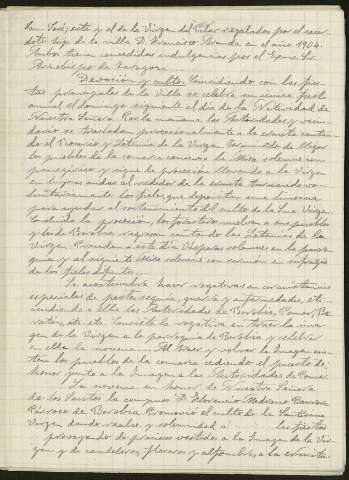 San José; este y el de la Virgen del Pilar regalados por el sacer-
dote hijo de la villa D. Francisco Aranda en el año 1904.
Ambos tienen concedidas indulgencias por el Excmo. Sr.
Arzobispo de Zaragoza.
Devoción y culto. Coincidiendo con las fies-
tas principales de la Villa se celebra su única fiesta
anual el domingo siguiente el día de la Natividad de
Nuestra Señora. Por la mañana las Autoridades y vecin-
dario se trasladan procesionalmente a la ermita cantan-
do el Rosario y Letanía de la Virgen. Terminado de llegar
los pueblos de la comarca comienza la Misa solemne con
panegírico y sigue la procesión llevando a la Virgen
en largas andas al rededor de la ermita turnando vo-
luntariamente los fieles, que depositan una limosna
para ayudar al sostenimiento del culto de la Sma. Virgen.
Concluida la procesión, los forasteros vuelven a sus pueblos
y los de Bordalba regresan cantando las Letanías de la
Virgen. Recuerdan a este día Vísperas solemnes en la parro-
quia y al siguiente Misa solemne con sermón en sufragio
de los fieles difuntos.
Se acostumbra hacer rogativas en circunstancias
especiales de peste, sequía, guerra y enfermedades, etc.
acudiendo a ella las Autoridades de Bordalba, Pomer,
etc. etc. Consiste la rogativa en traer la ima-
gen de la Virgen a la parroquia de Bordalba y celebrar
en ella la novena. Al traer y volver la Imagen asis-
ten los pueblos de la comarca cediendo el puesto de
honor junto a la Imagen a las Autoridades de Pomer.
La novena en honor de Nuestra Señora
de los Santos la compuso D. Florencio Medrano
Párroco de Bordalba. Promovió el culto de la Santísima
Virgen dando realce y solemnidad a las fiestas
proveyendo de preciosos vestidos a la Imagen de la Vir-
gen y de candeleros, floreros y alfombras a la ermita.